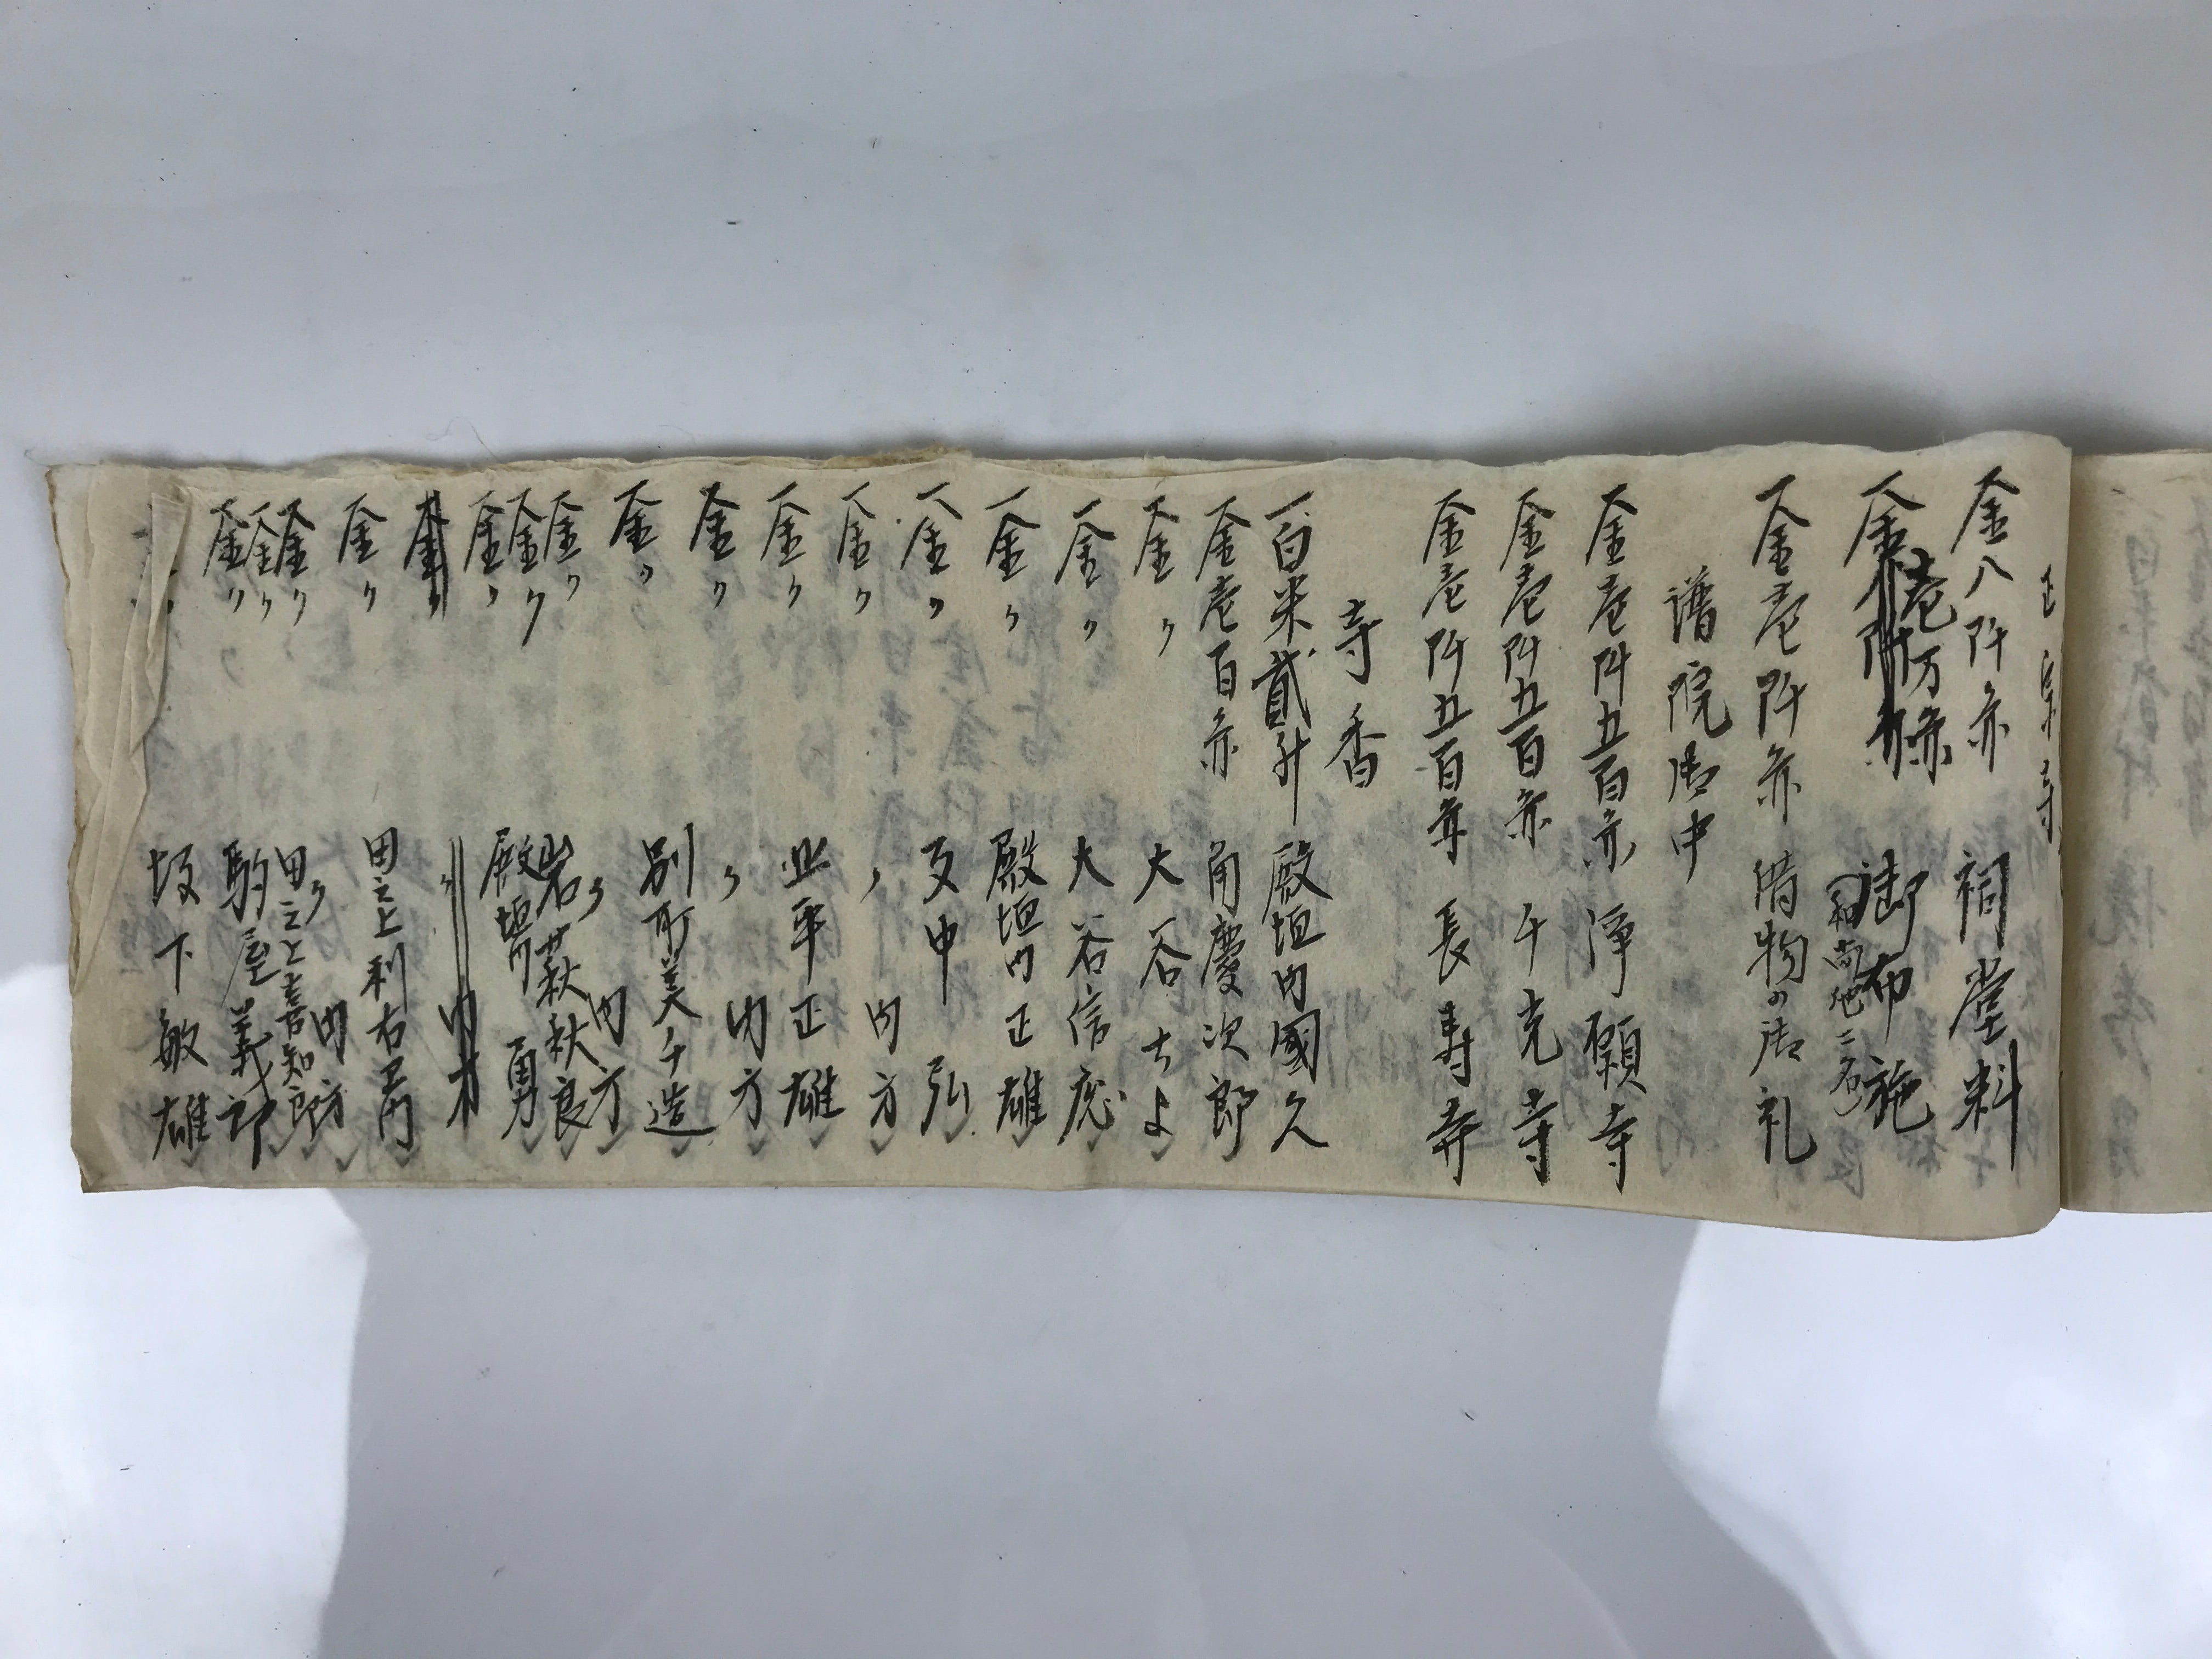 正宗寺
一金八阡亦 祠堂料
一金壱万亦 御布施
(和尚他二名)
一金壱阡亦 借物の御礼
諸院御中
一金壱阡五百亦 淨願寺
一金壱阡五百亦 千光寺
一金壱阡五百亦 長寿寺
寺香
一白米貳升 殿垣内國久
一金壱百亦 角慶次郎
一金〃 大谷ちよ
一金〃 大谷信應
一金〃 殿垣内正雄
一金〃 田中弘
一金〃 〃内方
一金〃 正雄
一金〃 〃内方
一金〃 別所美千造
一金〃 〃内方
一金〃 岩萩秋良
一金〃 殿垣内勇
一金〃 〃内方
一金〃 田之上利右エ門
一金〃 〃内方
一金〃 田之上喜知郎
一金〃 駒屋義郎
坂下敏雄